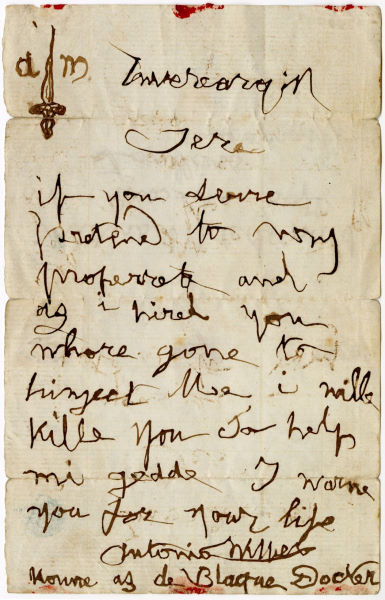 d m
Invercargill
Ser
if you dare
pretend to mony
properrete and
as i hired you
whore gone to
hinject Me i wille
Kille you So help
mi gedde I warne
you for your life
Antonio
Noune as de Blaque Docker